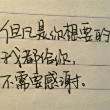 但凡是你想要的
我都给你,
不需要感谢.